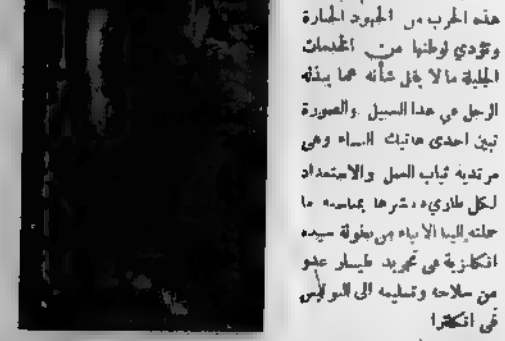 هذه الحرب من الجهود الجبارة
وتؤدي لوطنها من الخدمات
الجليلة ما لا يقل شأنه عما يبذله
الرجل في هذا السبيل والصورة
تبين احدى هاتيك النساء وهي
مرتدية ثياب العمل والاستعداد
لكل طاريء ننشرها بمناسبة ما
حملته الينا الانباء من بطولة سيدة
انكليزية في تجريد طيار عدو
من سلاحه وتسليمه الى البوليس
في انكلترا